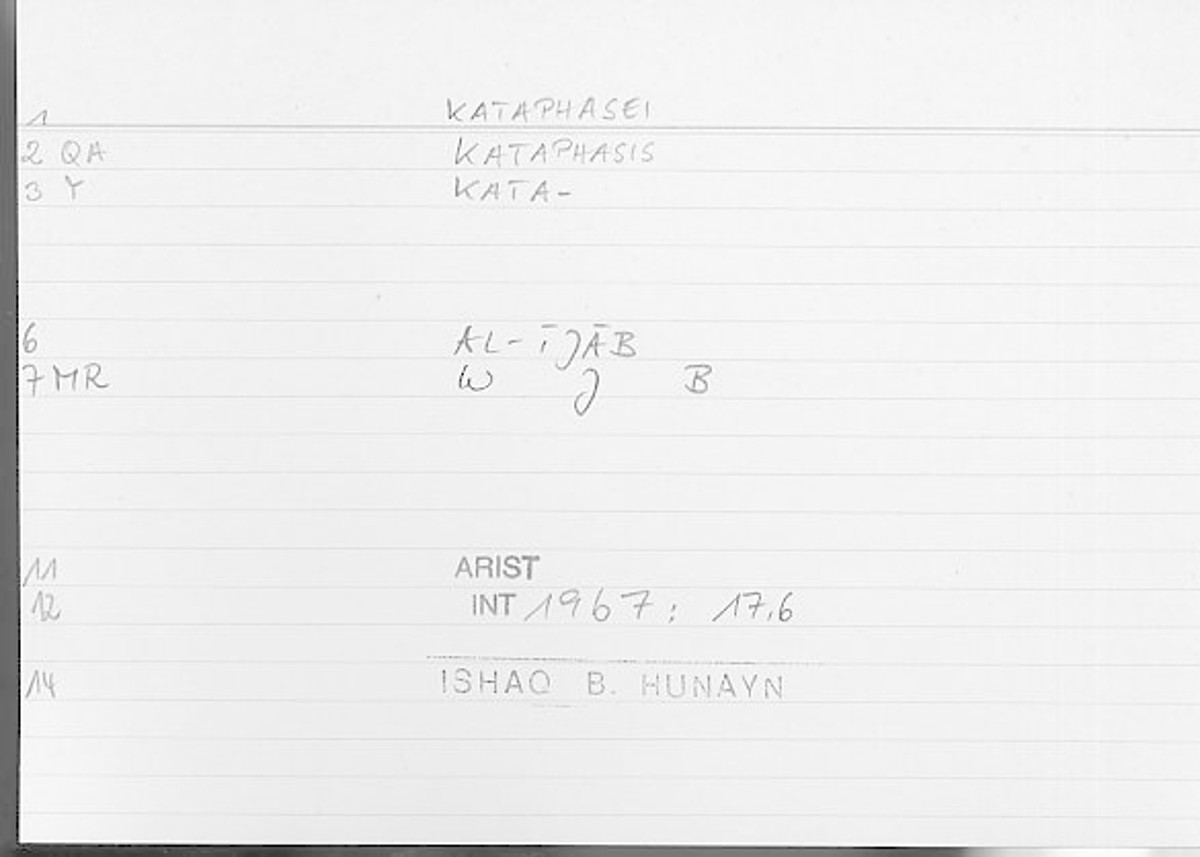 1 KATAPHASEI
2 QA KATAPHASIS
3 Y KATA-
6 AL-ĪJĀB
7 MR W J B
11 ARIST
12 INT 1967: 17,6
14 ISHAQ B. HUNAYN